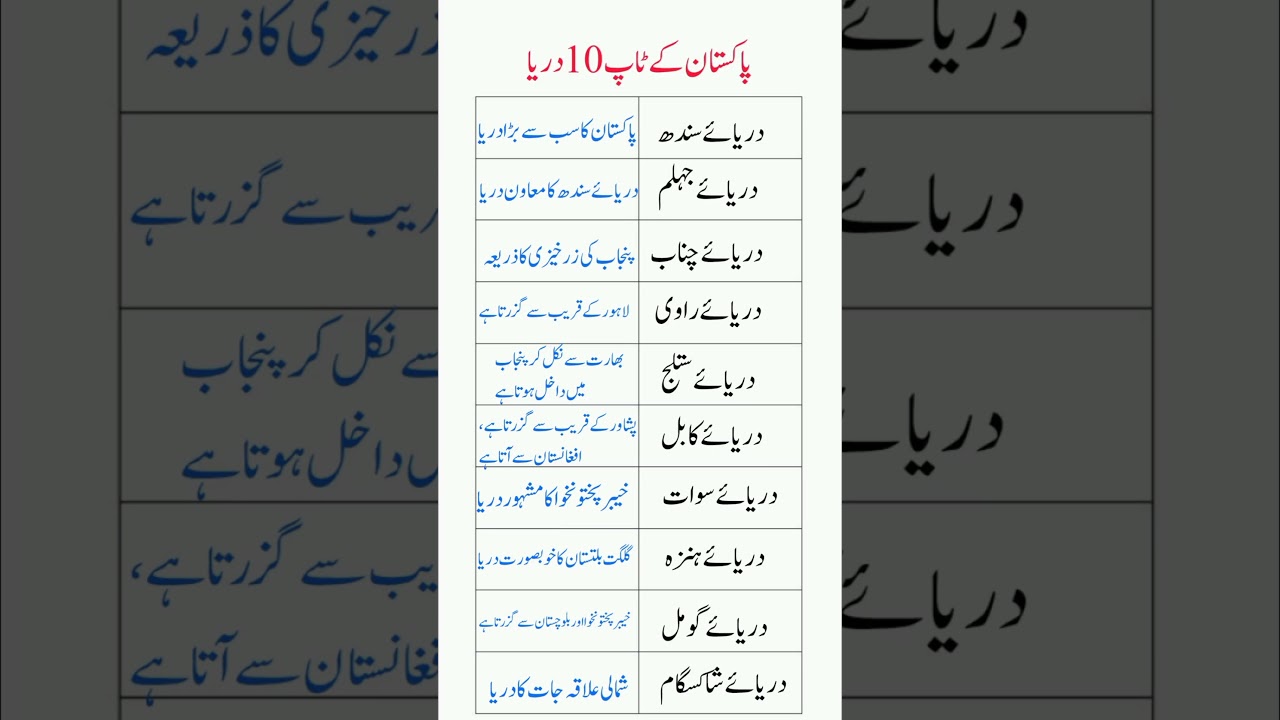 پاکستان کے ٹاپ 10 دریا
دریائے سندھ پاکستان کا سب سے بڑا دریا
دریائے جہلم دریائے سندھ کا معاون دریا
دریائے چناب پنجاب کی زرخیزی کا ذریعہ
دریائے راوی لاہور کے قریب سے گزرتا ہے
دریائے ستلج بھارت سے نکل کر پنجاب
میں داخل ہوتا ہے
دریائے کابل پشاور کے قریب سے گزرتا ہے،
افغانستان سے آتا ہے
دریائے سوات خیبر پختونخوا کا مشہور دریا
دریائے ہنزہ گلگت بلتستان کا خوبصورت دریا
دریائے گومل خیبر پختونخوا اور بلوچستان سے گزرتا ہے
دریائے شاکسگام شمالی علاقہ جات کا دریا